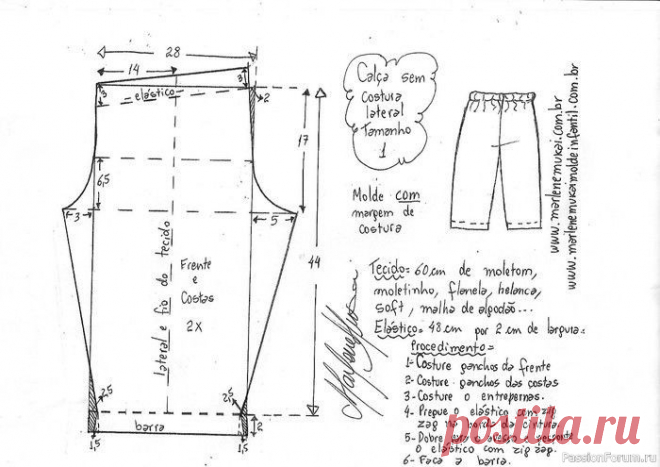 28
14
3
elástico
3
2
17
6,5
3
5
44
lateral e fio do tecido
Frente
e
Costas
2X
2,5
2,5
barra
2
1,5
1,5
Calça sem
costura
lateral
Tamanho
1
Molde com
margem de
costura
www.marlenemukai.com.br
www.marlenemukaimoldeinfantil.com.br
Tecido= 60cm de moletom,
moletinho, flanela, helanca,
soft, malha de algodão...
Elástico= 48cm por 2cm de largura=
Procedimento=
1- Costure ganchos da frente
2- Costure ganchos das costas
3- Costure o entrepernas.
4- Pregue o elástico com zig
zag na borda da cintura
5- Dobre para o avesso
o elástico com zig zag.
6- Faça a barra.
postila.ru
PassionForum.ru